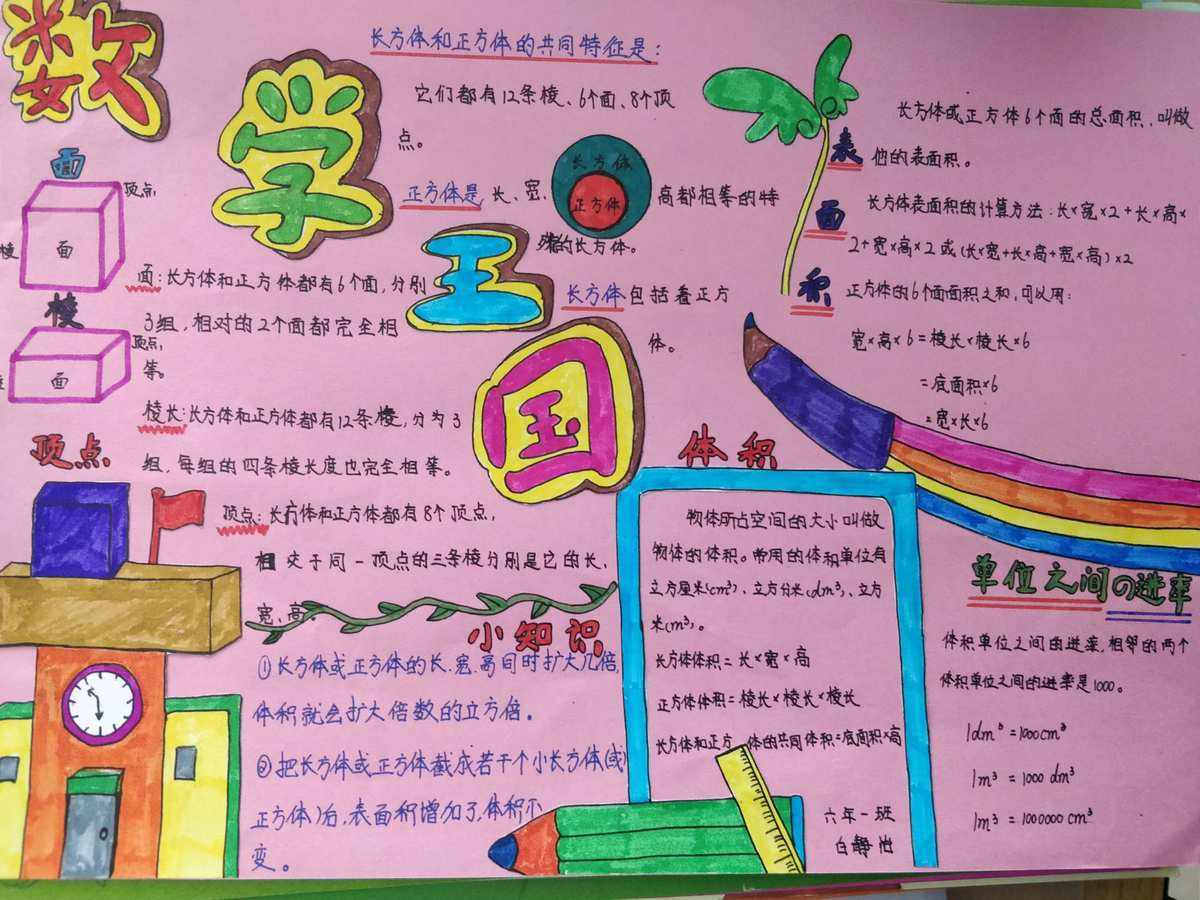 数学王国
长方体和正方体的共同特征是：
它们都有12条棱、6个面、8个顶
点。
长方体
正方体
正方体是长、宽、高都相等的特
殊的长方体。
长方体包括着正方
体。
面
顶点
棱
面
棱
顶点
面
面：长方体和正方体都有6个面，分别
3组，相对的2个面都完全相
等。
棱长：长方体和正方体都有12条棱，分为3
组，每组的四条棱长度也完全相等。
顶点
顶点：长方体和正方体都有8个顶点，
相交于同一顶点的三条棱分别是它的长、
宽、高。
小知识
①长方体或正方体的长、宽、高同时扩大几倍，
体积就会扩大倍数的立方倍。
②把长方体或正方体截成若干个小长方体（或
正方体）后，表面积增加了，体积不
变。
表面积
长方体或正方体6个面的总面积，叫做
他的表面积。
长方体表面积的计算方法：长×宽×2+长×高×
2+宽×高×2或（长×宽+长×高+宽×高）×2
正方体的6个面面积之和，可以用：
宽×高×6=棱长×棱长×6
=底面积×6
=宽×长×6
体积
物体所占空间的大小叫做
物体的体积。常用的体积单位有
立方厘米（cm³）、立方分米（dm³）、立方
米（m³）。
长方体体积=长×宽×高
正方体体积=棱长×棱长×棱长
长方体和正方体的共同体积=底面积×高
六年一班
白静
单位之间の进率
体积单位之间的进率，相邻的两个
体积单位之间的进率是1000。
1dm³=1000cm³
1m³=1000dm³
1m³=1000000cm³